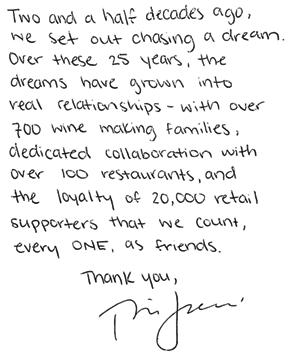 Two and a half decades ago,
we set out chasing a dream.
Over these 25 years, the
dreams have grown into
real relationships - with over
700 wine making families,
dedicated collaboration with
over 100 restaurants, and
the loyalty of 20,000 retail
supporters that we count,
every ONE, as friends.
Thank you,